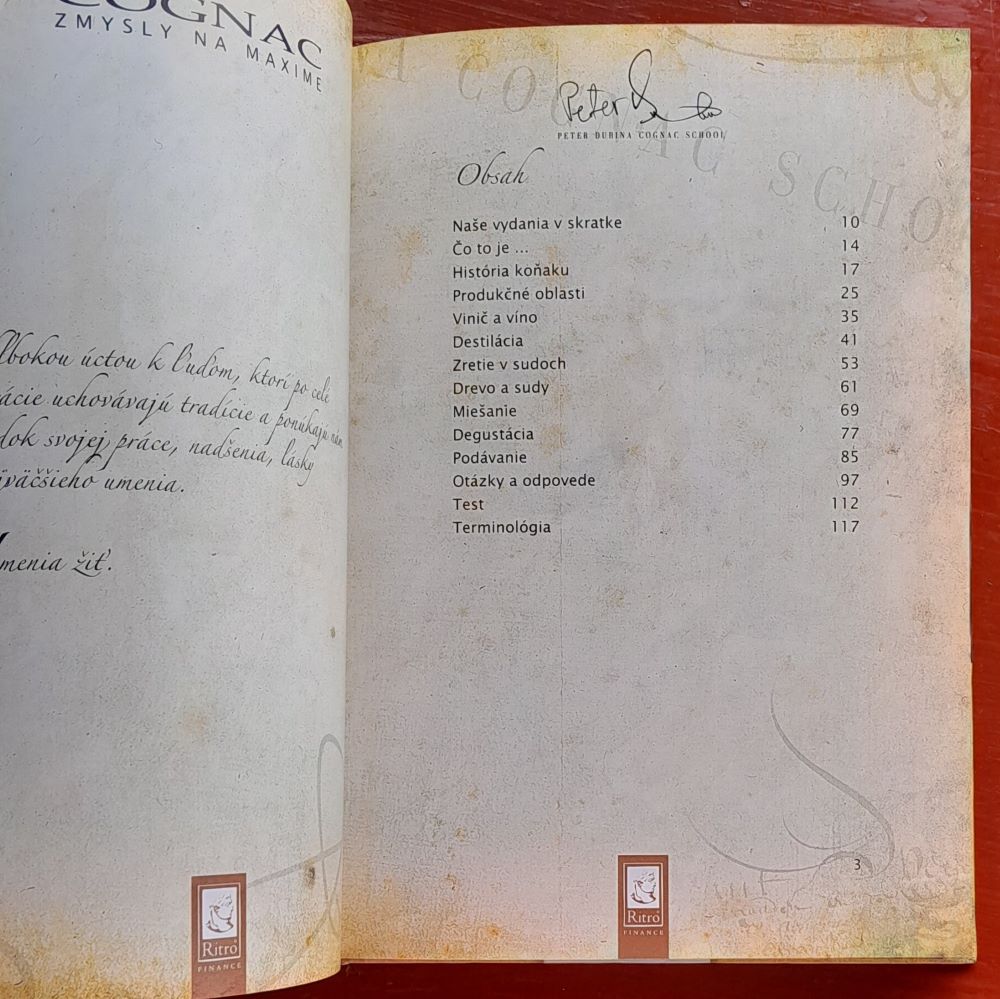 COGNAC
ZMYSLY NA MAXIME
úctou k ľuďom, ktorí po celé
uchovávajú tradície a ponúkajú nám
svojej práce, nadšenia, lásky
umenia.
žiť.
Ritro
FINANCE
COGNAC SCHO
Peter
PETER DUBINA COGNAC SCHOOL
Obsah
Naše vydania v skratke 10
Čo to je ... 14
História koňaku 17
Produkčné oblasti 25
Vinič a víno 35
Destilácia 41
Zretie v sudoch 53
Drevo a sudy 61
Miešanie 69
Degustácia 77
Podávanie 85
Otázky a odpovede 97
Test 112
Terminológia 117
3
Ritro
FINANCE